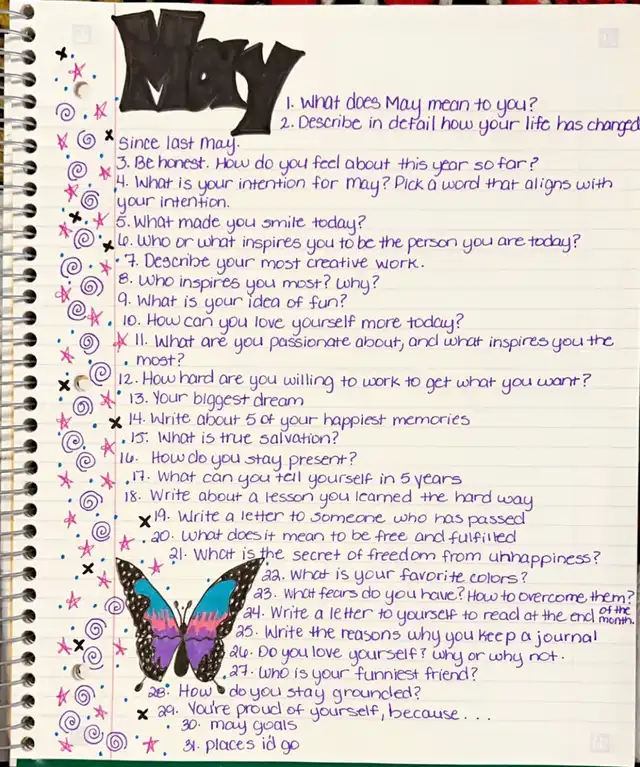 May
1. What does May mean to you?
2. Describe in detail how your life has changed
since last may.
3. Be honest. How do you feel about this year so far?
4. What is your intention for may? Pick a word that aligns with
your intention.
5. What made you smile today?
6. Who or what inspires you to be the person you are today?
7. Describe your most creative work.
8. Who inspires you most? Why?
9. What is your idea of fun?
10. How can you love yourself more today?
11. What are you passionate about, and what inspires you the
most?
12. How hard are you willing to work to get what you want?
13. Your biggest dream
14. Write about 5 of your happiest memories
15. What is true salvation?
16. How do you stay present?
17. What can you tell yourself in 5 years
18. Write about a lesson you learned the hard way
19. Write a letter to someone who has passed
20. What does it mean to be free and fulfilled
21. What is the secret of freedom from unhappiness?
22. What is your favorite colors?
23. What fears do you have? How to overcome them?
24. Write a letter to yourself to read at the end of the month.
25. Write the reasons why you keep a journal
26. Do you love yourself? why or why not.
27. Who is your funniest friend?
28. How do you stay grounded?
29. You're proud of yourself, because...
30. may goals
31. places i'd go